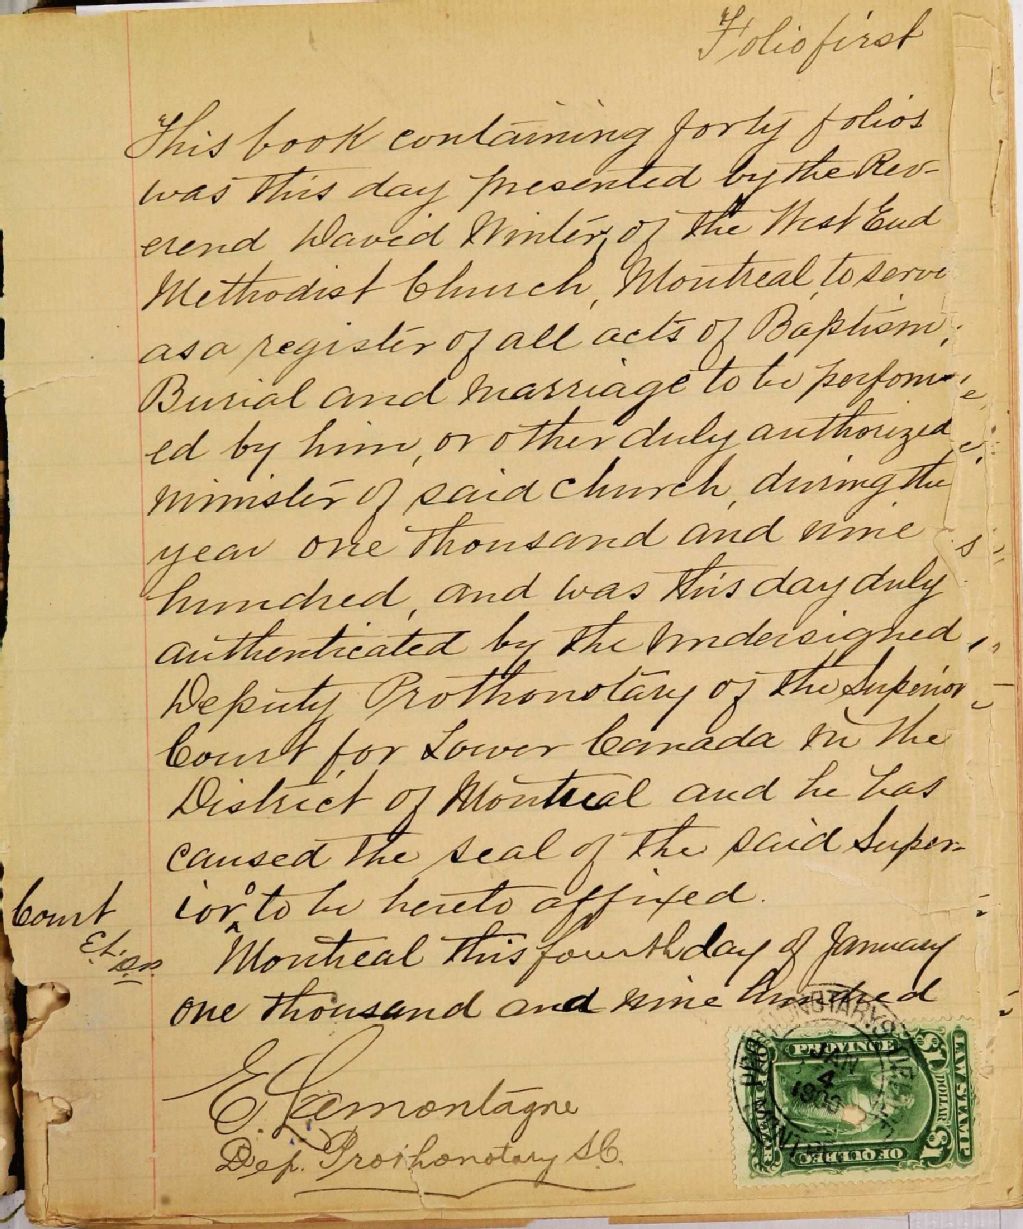 Folio first
This book containing forty folios
was this day presented by the Rev-
erend David Winter, of the West End
Methodist Church, Montreal, to serve
as a register of all acts of Baptism,
Burial and Marriage to be perform-
ed by him, or other duly authorized
minister of said church, during the
year one thousand and nine
hundred, and was this day duly
authenticated by the undersigned
Deputy Prothonotary of the Superior
Court for Lower Canada in the
District of Montreal and he has
caused the seal of the said Super-
ior to be hereto affixed.
Court
Montreal this fourth day of January
one thousand and nine hundred
E. Lamontagne
Dep. Prothonotary S.C.
PROVINCE
OF QUEBEC
LAW STAMP
$1 DOLLAR $1
JAN
4
1900